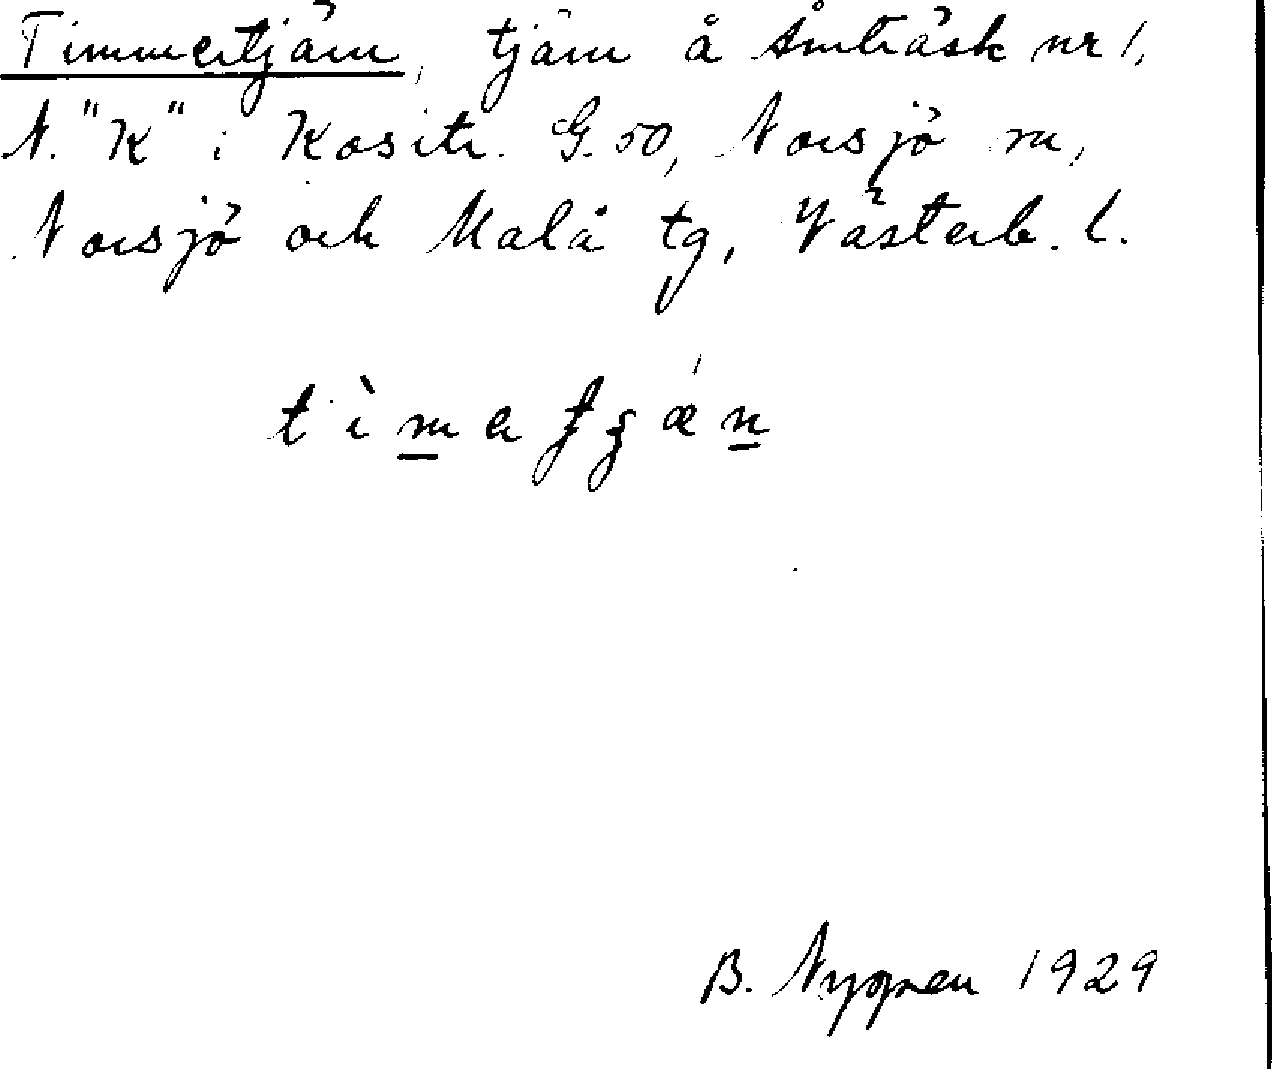 Timmertjärn, tjärn å Åmträsk nr 1,
N. "K" i Kositr. G. 50, Norsjö sn,
Norsjö och Malå tg, Västerb. l.
B. Nygren 1929